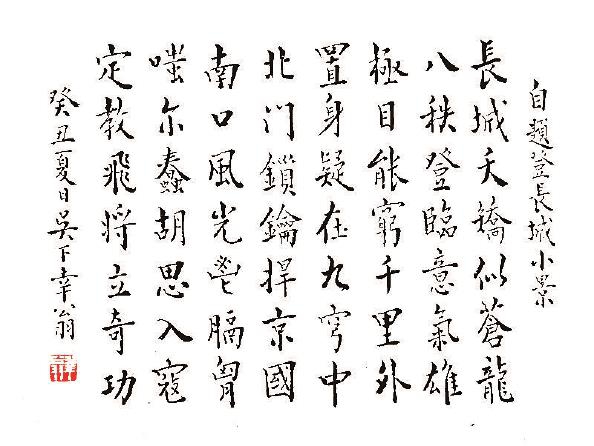 自題登長城小景
長城夭矯似蒼龍
八秩登臨意氣雄
極目能窮千里外
置身疑在九穹中
北门鎖鑰捍京國
南口風光膈胷
嗤尔蠢胡思入寇
定教飛将立奇功
癸丑夏日吳下幸翁